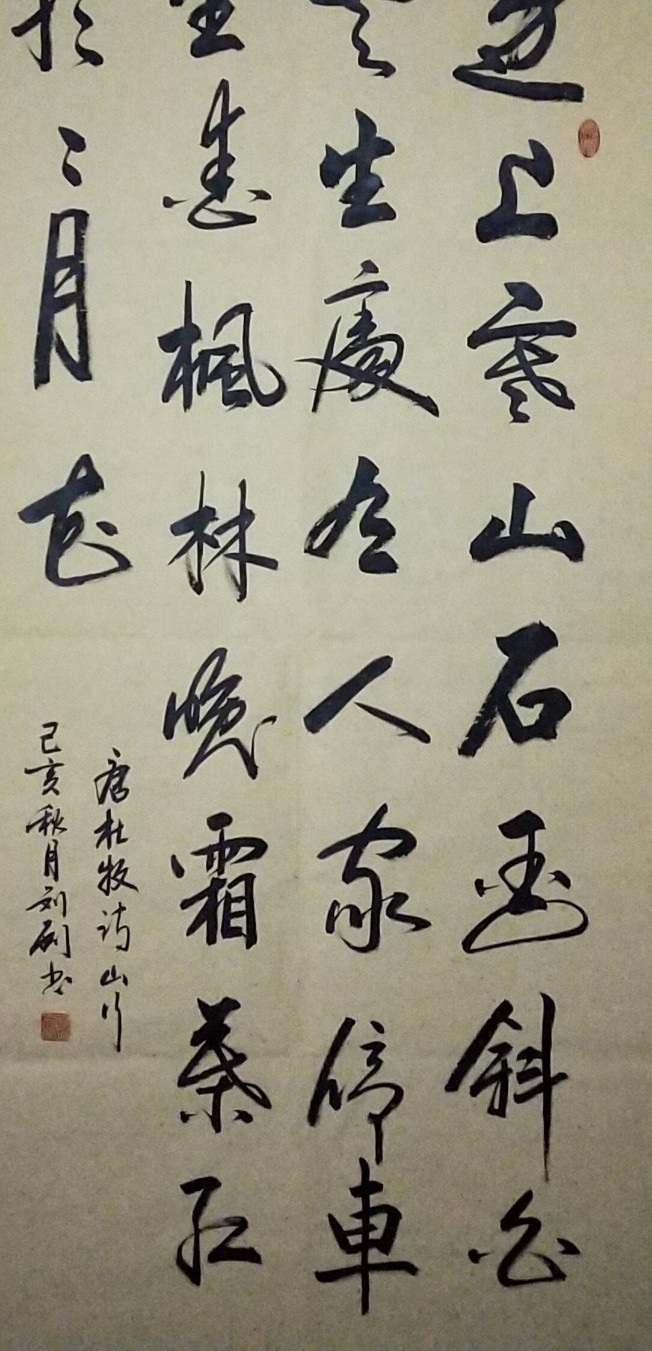 远上寒山石径斜白
云生處有人家停車
坐愛楓林晚霜葉红
於二月花
唐杜牧诗山行
己亥秋月刘书